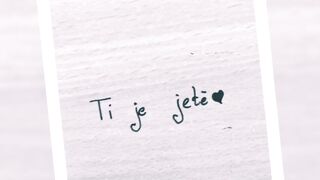 Ti je jetë♥